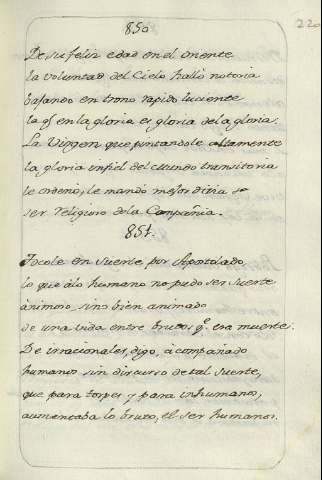 220
850
De su feliz edad en el oriente
la voluntad del Cielo hallò notoria
bajando en trono rapido luciente
la q̃ en la gloria es gloria dela gloria.
La Virgen que pintandole altamente
la gloria infiel del mundo transitoria
le ordenò, le mandò mejor diria
ser religioso dela Compañia.
851.
Tocole en suerte por Apostolado,
lo que à lo humano no pudo ser suerte
ànimoso, sino bien animado
de una vida entre brutos q.e era muerte.
De irracionales, digo, àcompañado
humanos sin discurso de tal suerte,
que para torpes y para inhumanos,
aumentaba lo bruto, el ser humanos.